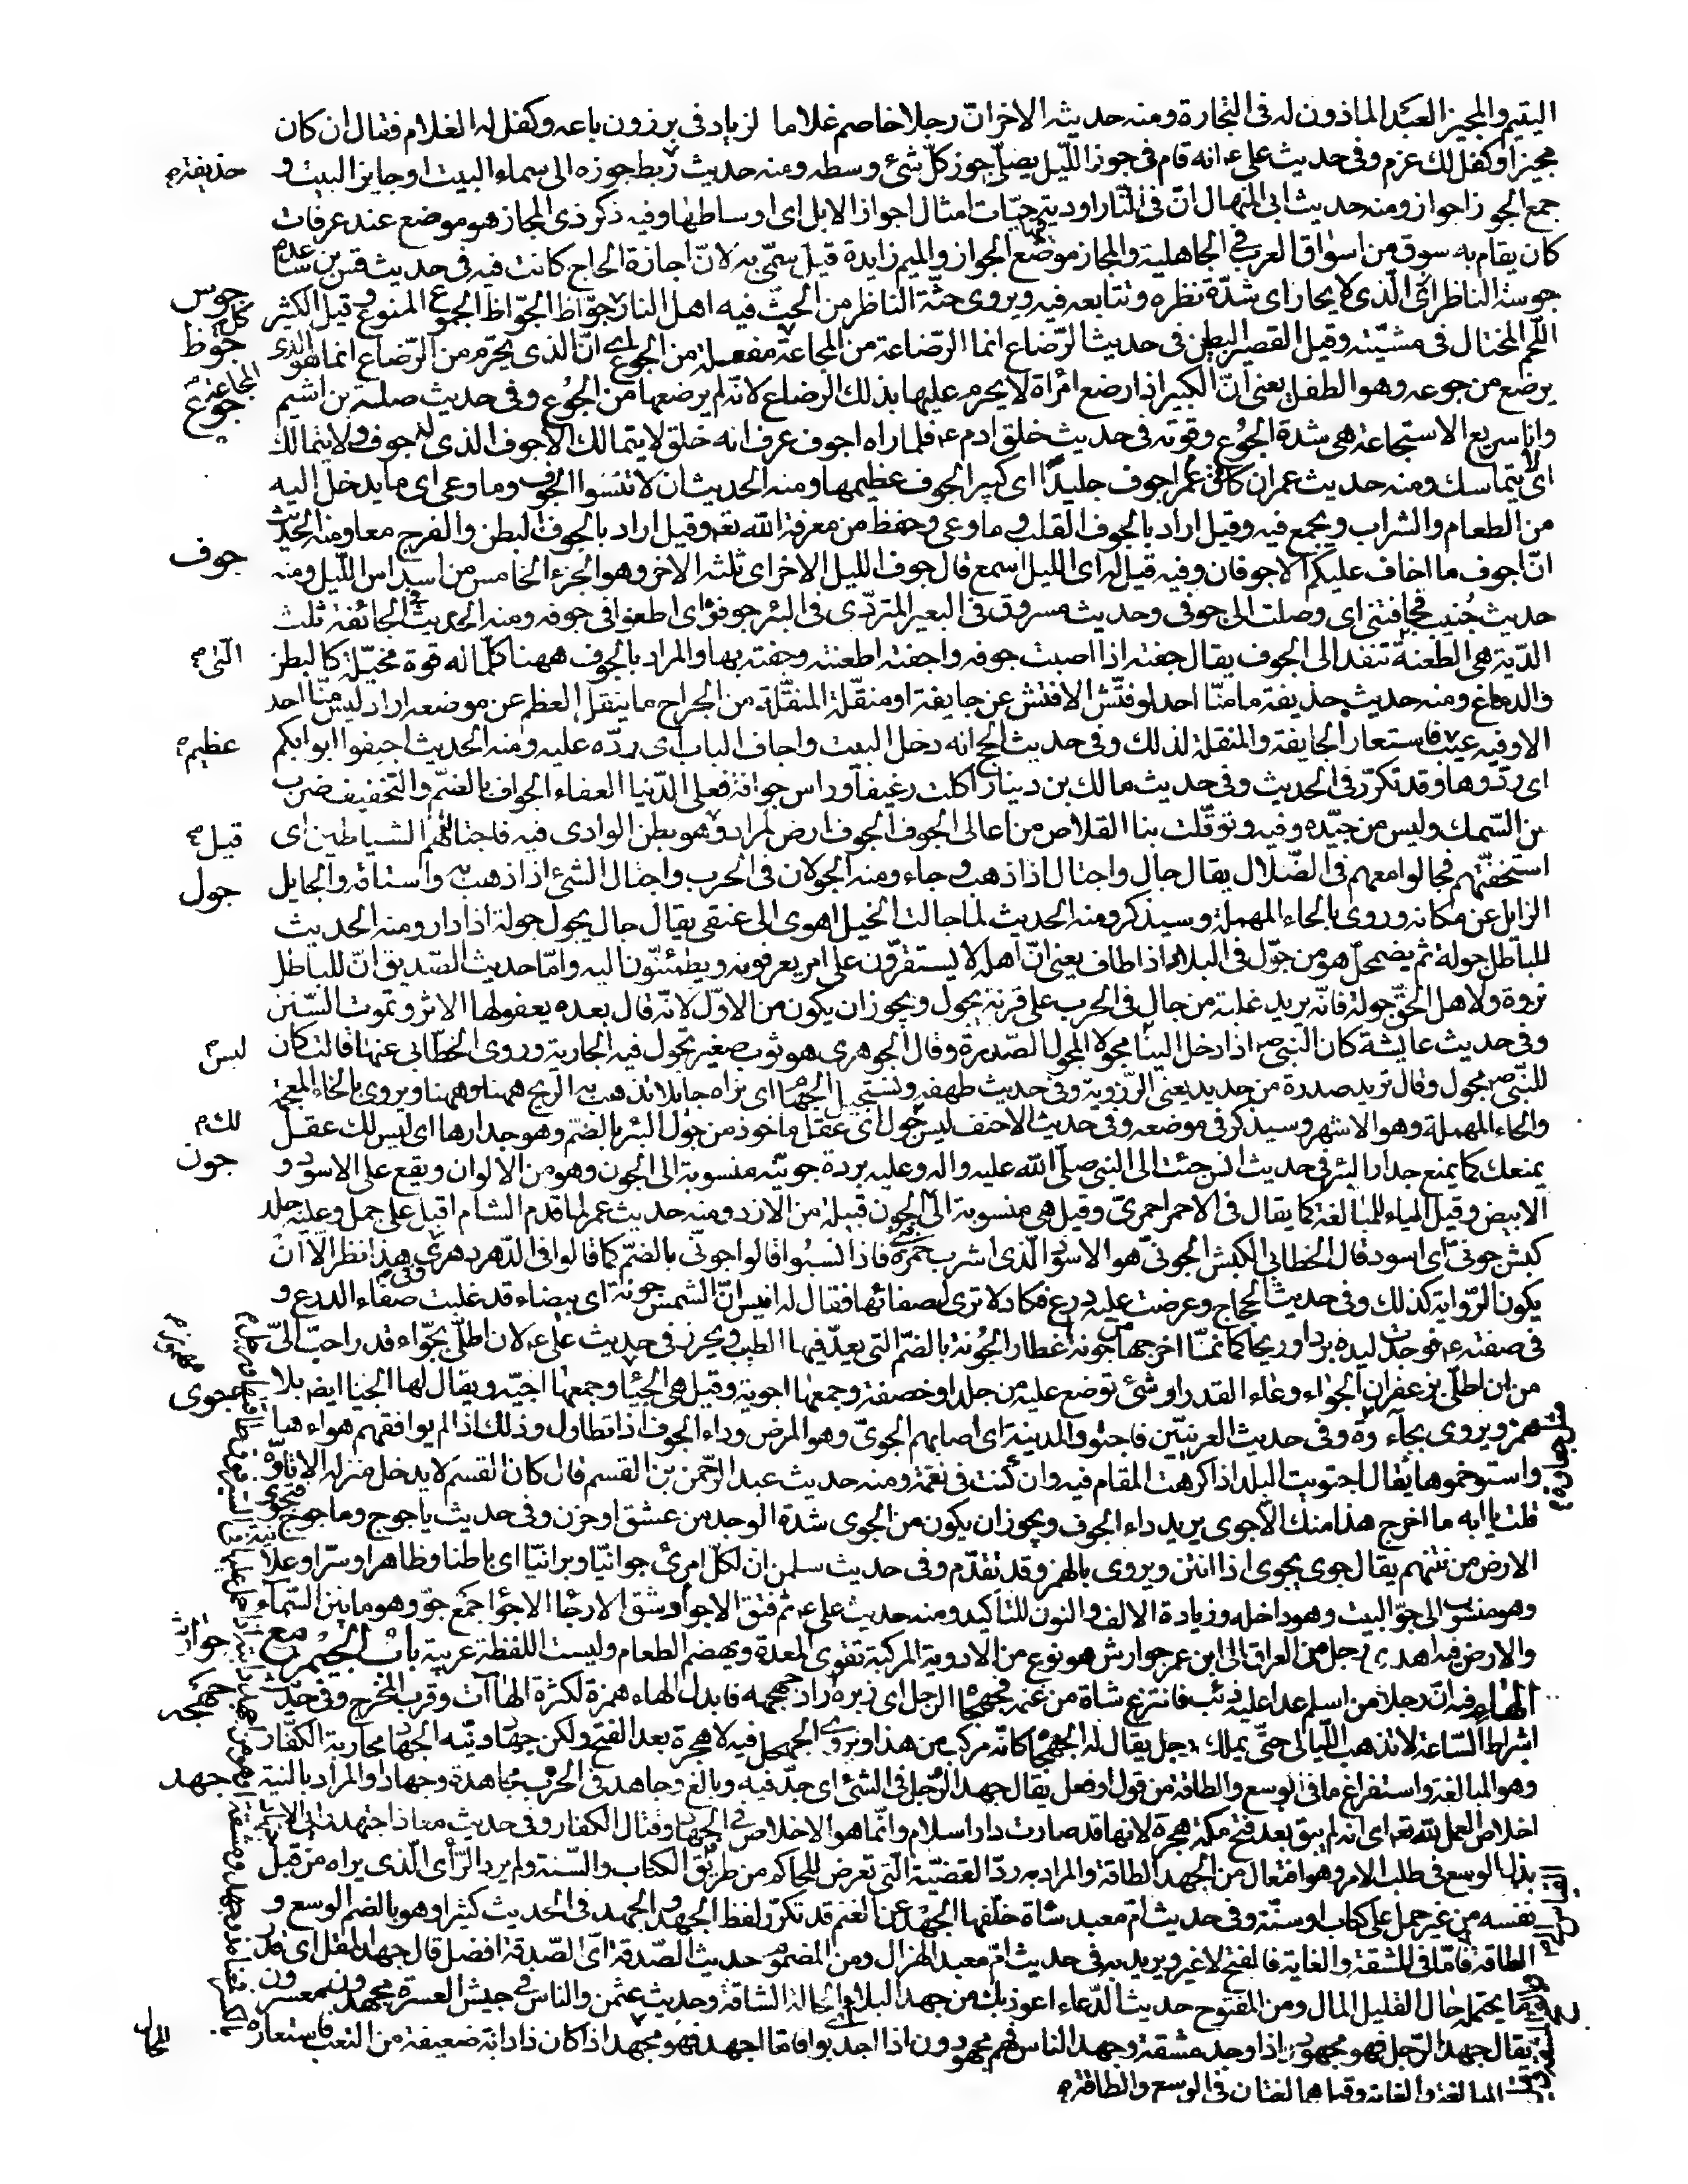 اليتيم والمجيز العبد الماذون له فى التجارة ومنه حديثه الاخر انّ رجلا خاصم غلاما لزياد فى برزون باعه وكفل له الغلام فقال ان كان
مجيزا وكفل لك غرم وفى حديث على ع انه قام فى جوز اللّيل يصلّى جوز كلّ شئ وسطه ومنه حديث ربط جوزه الى سماء البيت او جايز البيت و
حذيفة
جمع الجوز اجواز ومنه حديث ابى المنهال انّ فى النّار اودية فيها حيّات امثال اجواز الابل اى اوساطها وفيه ذكر ذى المجاز هو موضع عند عرفات
كان يقام به سوق من اسواق العرب فى الجاهلية والمجاز موضع الجواز والميم زايدة قيل سمّى به لانّ اجازة الحاج كانت فيه فى حديث قس بن ساعدة
جوس
جوسة الناظر اى الّذى لا يحار اى شدّة نظره وتتابعه فيه ويروى حثّة الناظر من الحثّ فيه اهل النار جوّاظ الجوّاظ الجموع المنوع وقيل الكثير
كل
جوظ
اللّحم المختال فى مشيّته وقيل القصير البطين فى حديث الرّضاع انما الرّضاعة من المجاعة مفعلة من الجوع اى انّ الذى يحرّم من الرّضاع انما هو الذى
المجاعة
يرضع من جوعه وهو الطفل يعنى انّ الكبير اذا رضع امراة لا يحرم عليها بذلك الرضاع لانّه لم يرضعها من الجُوع وفى حديث صلة بن اشيم
جوع
وانا سريع الاستجاعة هى شدة الجُوع وقوته فى حديث خلق ادم ع فلما راه اجوف عرف انه خلق لا يتمالك الاجوف الذى له جوف ولا يتمالك
اى لا يتماسك ومنه حديث عمران كان عمر اجوف جليدًا اى كبير الجوف عظيمها ومنه الحديث ان لا تنسوا الجوف وما وعى اى ما يدخل اليه
من الطعام والشراب ويجمع فيه وقيل اراد بالجوف القلب وما وعى وحفظ من معرفة الله تعم وقيل اراد بالجوف البطن والفرج معا ومنه الحديث
جوف
انّ اخوف ما اخاف عليكم الاجوفان وفيه قيل له اى الليل اسمع قال جوف الليل الاخر اى ثلثه الاخر وهو الجزء الخامس من اسداس اللّيل ومنه
حديث خُبيب فجافتنى اى وصلت الى جوفى وحديث مسروق فى البعير المتردّى فى البئر جوفوه اى اطعنوا فى جوفه ومنه الحديث فى الجائفة ثلث
الدّية هى الطعنة تنفد الى الجوف يقال جفته اذا اصبت جوفه واجفته اطعنته وجفته بها والمراد بالجوف ههنا كلّما له قوة محيّلة كالبطن
الّتى
والدماغ ومنه حديث حذيفة ما منّا احد لو فتّش الا فتش عن جايفة او منقّلة المنقّلة من الجراح ما ينقل العظم عن موضعه اراد ليس منّا احد
الا وفيه عيب فاستعار الجايفة والمنقلة لذلك وفى حديث الحج انه دخل البيت واجاف الباب اى ردّه عليه ومنه الحديث اجيفوا ابوابكم
عظيم
اى ردّوها وقد تكرّر فى الحديث وفى حديث مالك بن دينار اكلت رغيفا وراس جوافة فعلى الدّنيا العفاء الجواف بالضمّ والتخفيف ضرب
من السّمك وليس من جيّده وفيه وتوقّلت بنا القلاص من اعالى الجوف الجوف ارض لمراد وهو بطن الوادى فيه فاجتالتهم الشياطين اى
قيل
استخفّتهم فجالوا معهم فى الضّلال يقال جال واجتال اذا ذهب وجاء ومنه الجولان فى الحرب واجتال الشئ اذا ذهب به واستاقه والجايل
جول
الزايل عن مكانه وروى بالحاء المهملة وسيذكر ومنه الحديث لما جالت الخيل اهوى الى عنقى يقال جال يجول جولة اذا دار ومنه الحديث
للباطل جولة ثم يضمحل هو من جوّل فى البلاد اذا طاف يعنى انّ اهله لا يستقرّون على امر يعرفونه ويطمئنّون اليه وامّا حديث الصّديق انّ للباطل
نزوة ولاهل الحقّ جولة فانّه يريد غلبة من جال فى الحرب على قرنه يجول ويجوز ان يكون من الاوّل لانّه قال بعده يعفو لها الاثر وتموت السّنن
وفى حديث عايشة كان النبى ص اذا دخل الينا مجولا المجول الصّدرة وقال الجوهرى هو ثوب صغير تجول فيه الجارية وروى الخطّابى عنها قالت كان
لبس
للنّبى ص مجول وقال تريد صدرة من حديد يعنى الزّرْدية وفى حديث طهفة ونستجيل الجهام اى نراه جايلا تذهب به الريح ههنا وههنا ويروى بالخاء المعجمة
والحاء المهملة وهو الاشهر وسيذكر فى موضعه وفى حديث الاحنف ليس جُول اى عقل ماخوذ من جول البئر بالضمّ وهو جدارها اى ليس لك عقل
لك
يمنعك كما يمنع جدار البئر فى حديث انس جئت الى النبى صلّى الله عليه واله وعليه بردة جونيّة منسوبة الى الجون وهو من الالوان ويقع على الاسود و
جون
الابيض وقيل الياء للمبالغة كما يقال فى الاحمر احمرىّ وقيل هى منسوبة الى بنى الجون قبيلة من الازد ومنه حديث عمر لما قدم الشام اقبل على جمل وعليه جلد
كبش جونىّ اى اسود قال الخطابى الكبش الجونىّ هو الاسود الّذى اشرب حمرة فاذا نسبوا قالوا جونّى بالضمّ كما قالوا فى الدّهر دهرىّ وفى هذا نظر الّا ان
يكون الرّواية كذلك وفى حديث الحجاج وعرضت عليه درع فكاد لا ترى لصفائها فقال له انيس انّ الشمس جونة اى بيضاء قد غلبت صفاء الدرع و
فى صفته ع فوجدت ليده بردا وريحا كانما اخرجها من جونة عطار الجُونة بالضمّ التى يعدّ فيها الطيب ويحرز فى حديث على ع لان اطلّى بجوّاء قدر احبّ الىّ
من ان اطلّى بزعفران الجوّاء وعاء القدر او شئ توضع عليه من جلد او خصفة وجمعها اجوية وقيل هى الجئيا وجمعها اجيّه ويقال لها الجيا ايضا بلا
جوى
همز ويروى بجآءوة وفى حديث العرنيّين فاجتووا المدينة اى اصابهم الجوى وهو المرض وداء الجوف اذا تطاول وذلك اذا لم يوافقهم هواءها
واستوخموها يقال اجتويت البلد اذا كرهت المقام فيه وان كنت فى نعمة ومنه حديث عبد الرّحمن بن القسم قال كان القسم لا يدخل منزله الا تاوّه
قلت يا ابه ما اخرج هذا منك الا جوى يريد داء الجوف ويجوز ان يكون من الجوى شدة الوجد من عشق او حزن وفى حديث ياجوج وماجوج فتجوى
الارض من نتنهم يقال جوى يجوى اذا انتن ويروى بالهمز وقد تقدّم وفى حديث سلمن ان لكلّ امرئ جوانيّا وبرانيّا اى باطنا وظاهرا وسرّا وعلانية
وهو منسوب الى جوّ البيت وهو داخله وزيادة الالف والنون للتاكيد ومنه حديث على ع ثم فتق الاجواء وشق الارجاء الاجواء جمع جوّ وهو ما بين السّماء
والارض فيه اهدى رجل من العراق الى ابن عمر جوارش هو نوع من الادوية المركبة تقوى المعدة ويهضم الطعام وليست اللفظة عربية باب الجيم مع
جوارش
الهاء فيه انّ رجلا من اسلم عدا عليه ذئب فانتزع شاة من غنمه فجهجأ الرجل اى زبره اراد جهجهه فابدل الهاء همزة لكثرة الهاآت وقرب المخرج وفى حديث
جهجه
اشراط السّاعة لا تذهب اللّيالى حتّى يملك رجل يقال له الجهجاه كانّه مركب من هذا ويروى الجهجل فيه لا هجرة بعد الفتح ولكن جهاد ونيّه الجهاد محاربة الكفّار
وهو المبالغة واستفراغ ما فى الوسع والطاقة من قول او فعل يقال جهد الرّجل فى الشئ اى جدّ فيه وبالغ وجاهد فى الحرب مجاهدة وجهادا والمراد بالنية
جهد
اخلاص العمل لله تعم اى انه لم يبق بعد فتح مكة هجرة لانها قد صارت دار اسلام وانّما هو الاخلاص فى الجهاد وقتال الكفار وفى حديث معاذ اجتهد رايى الاجتهاد
بذل الوسع فى طلب الامر وهو افتعال من الجهد الطاقة والمراد به ردّ القضيّة الّتى تعرض للحاكم من طريق القياس الى الكتاب والسّنة ولم يرد الرّأى الّذى يراه من قبل
نفسه من غير حمل على كتاب او سنّة وفى حديث امّ معبد شاة خلّفها الجهد عن الغنم قد تكرّر لفظ الجهد والجهد فى الحديث كثيرا وهو بالضم الوسع و
الطاقة فامّا فى المشقة والغاية فالفتح لا غير ويريد به فى حديث امّ معبد الهزال ومن المضموم حديث الصّدقة اىّ الصّدقة افضل قال جهد المقل اى قدر
ما يحتمله حال القليل المال ومن المفتوح حديث الدّعاء اعوذ بك من جهد البلاء اى الحالة الشاقة وحديث عثمن والناس فى جيش العسرة مجهدون معسرون
يقال جهد الرّجل فهو مجهود اذا وجد مشقة وجهد الناس فهم مجهودون اذا اجدبوا فاما اجهد فهو مجهد اذا كان ذا دابة ضعيفة من التعب فاستعاره
المبالغة والغاية وقيل هما لغتان فى الوسع والطاقة